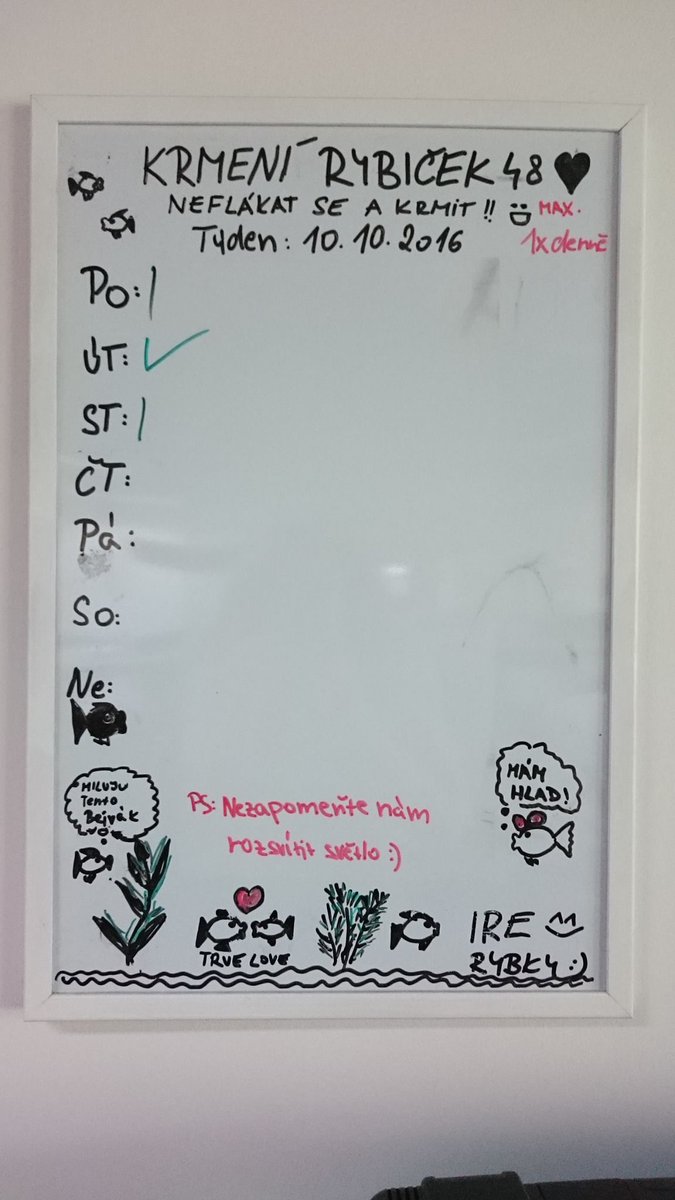 KRMENÍ RYBIČEK 48 ♥
NEFLÁKAT SE A KRMIT!! MAX.
Týden: 10.10.2016 1x denně
Po: |
ÚT: ✓
ST: |
ČT:
Pá:
So:
Ne:
MILUJU
Tento
Bejvák
MÁM
HLAD!
PS: Nezapomeňte nám
rozsvítit světlo :)
TRUE LOVE
IRE
RYBKY :)